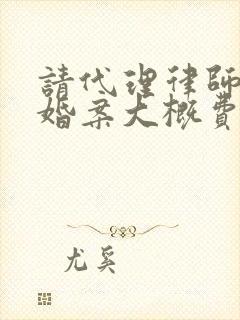 請代理律師
婚案大概費
尤奚